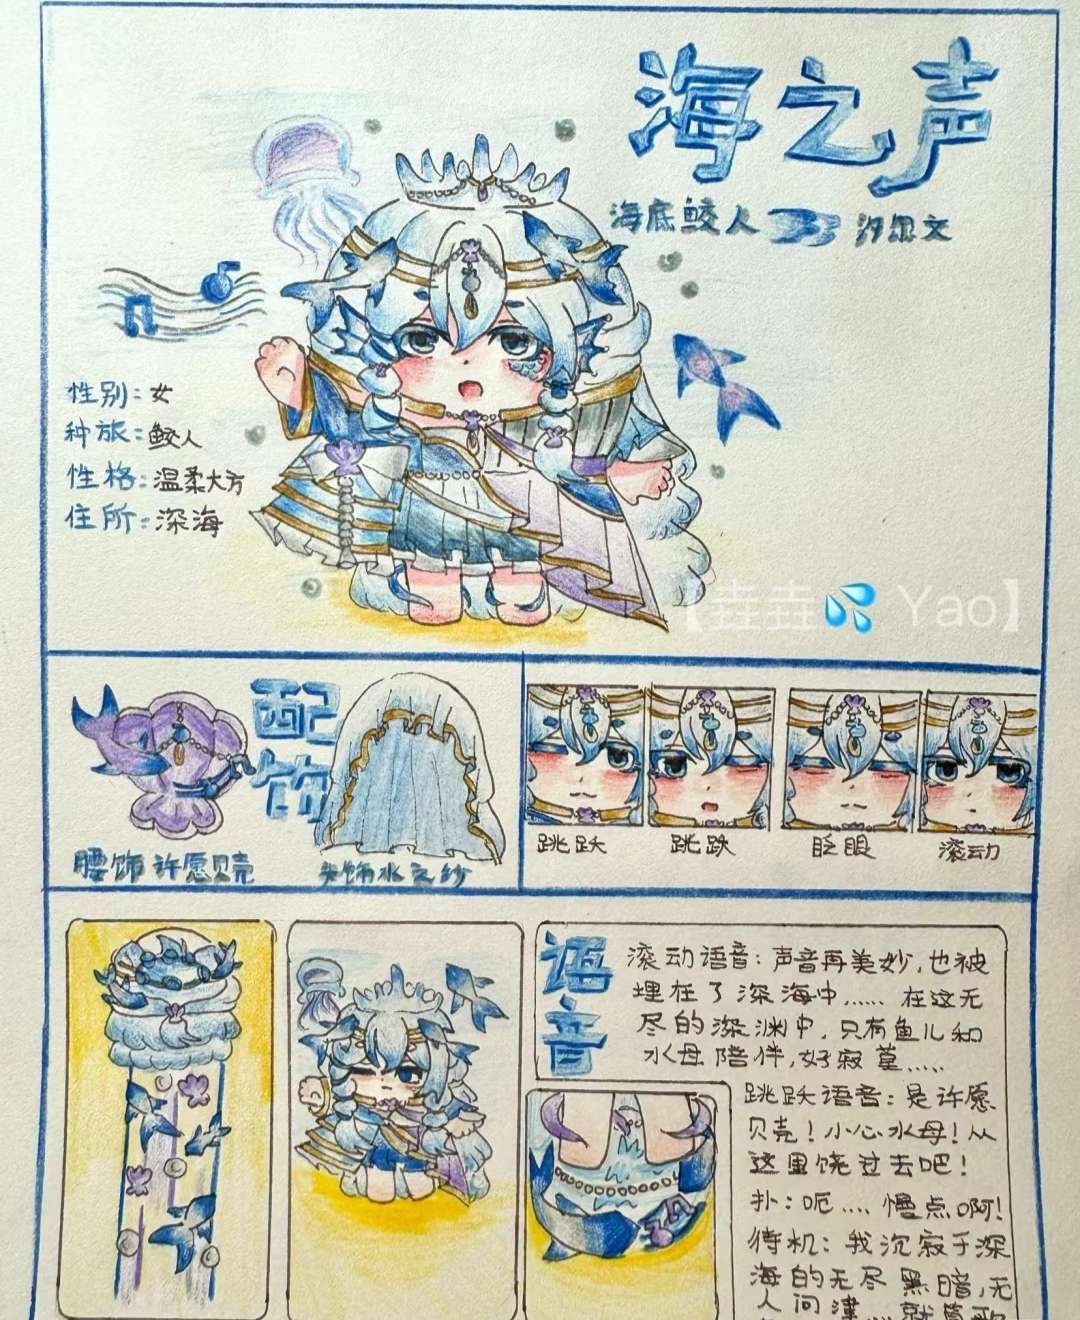 海之声
海底鲛人 汐尔文
性别:女
种旅:鲛人
性格:温柔大方
住所:深海
【垚垚💦 Yao】
配饰
腰饰 许愿贝壳
头饰水之纱
跳跃
跳跃
眨眼
滚动
语音
滚动语音:声音再美妙,也被
埋在了深海中…… 在这无
尽的深渊中,只有鱼儿和
水母陪伴,好寂寞……
跳跃语音:是许愿
贝壳!小心水母!从
这里饶过去吧!
扑:呃…. 慢点啊!
待机:我沉寂于深
海的无尽黑暗,无
人问津